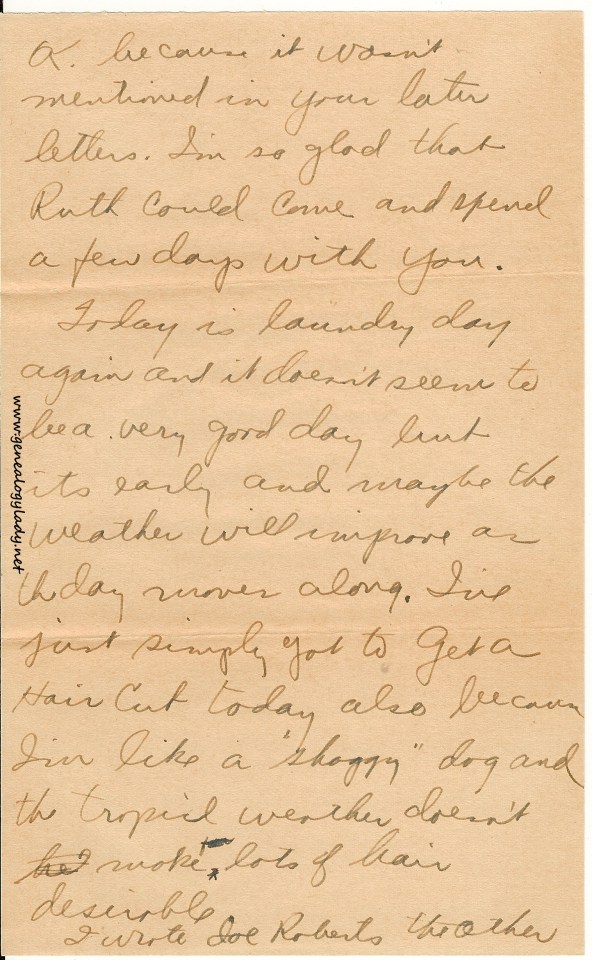 O.K. because it wasn't
mentioned in your later
letters. I'm so glad that
Ruth could come and spend
a few days with you.
Today is laundry day
again and it doesn't seem to
be a very good day but
its early and maybe the
weather will improve as
th day moves along. I've
just simply got to Get a
Hair Cut today also because
I'm like a "shaggy" dog and
the tropicl weather doesn't
make lots of hair
desirable.
I wrote Joe Roberts the other
www.genealogylady.net